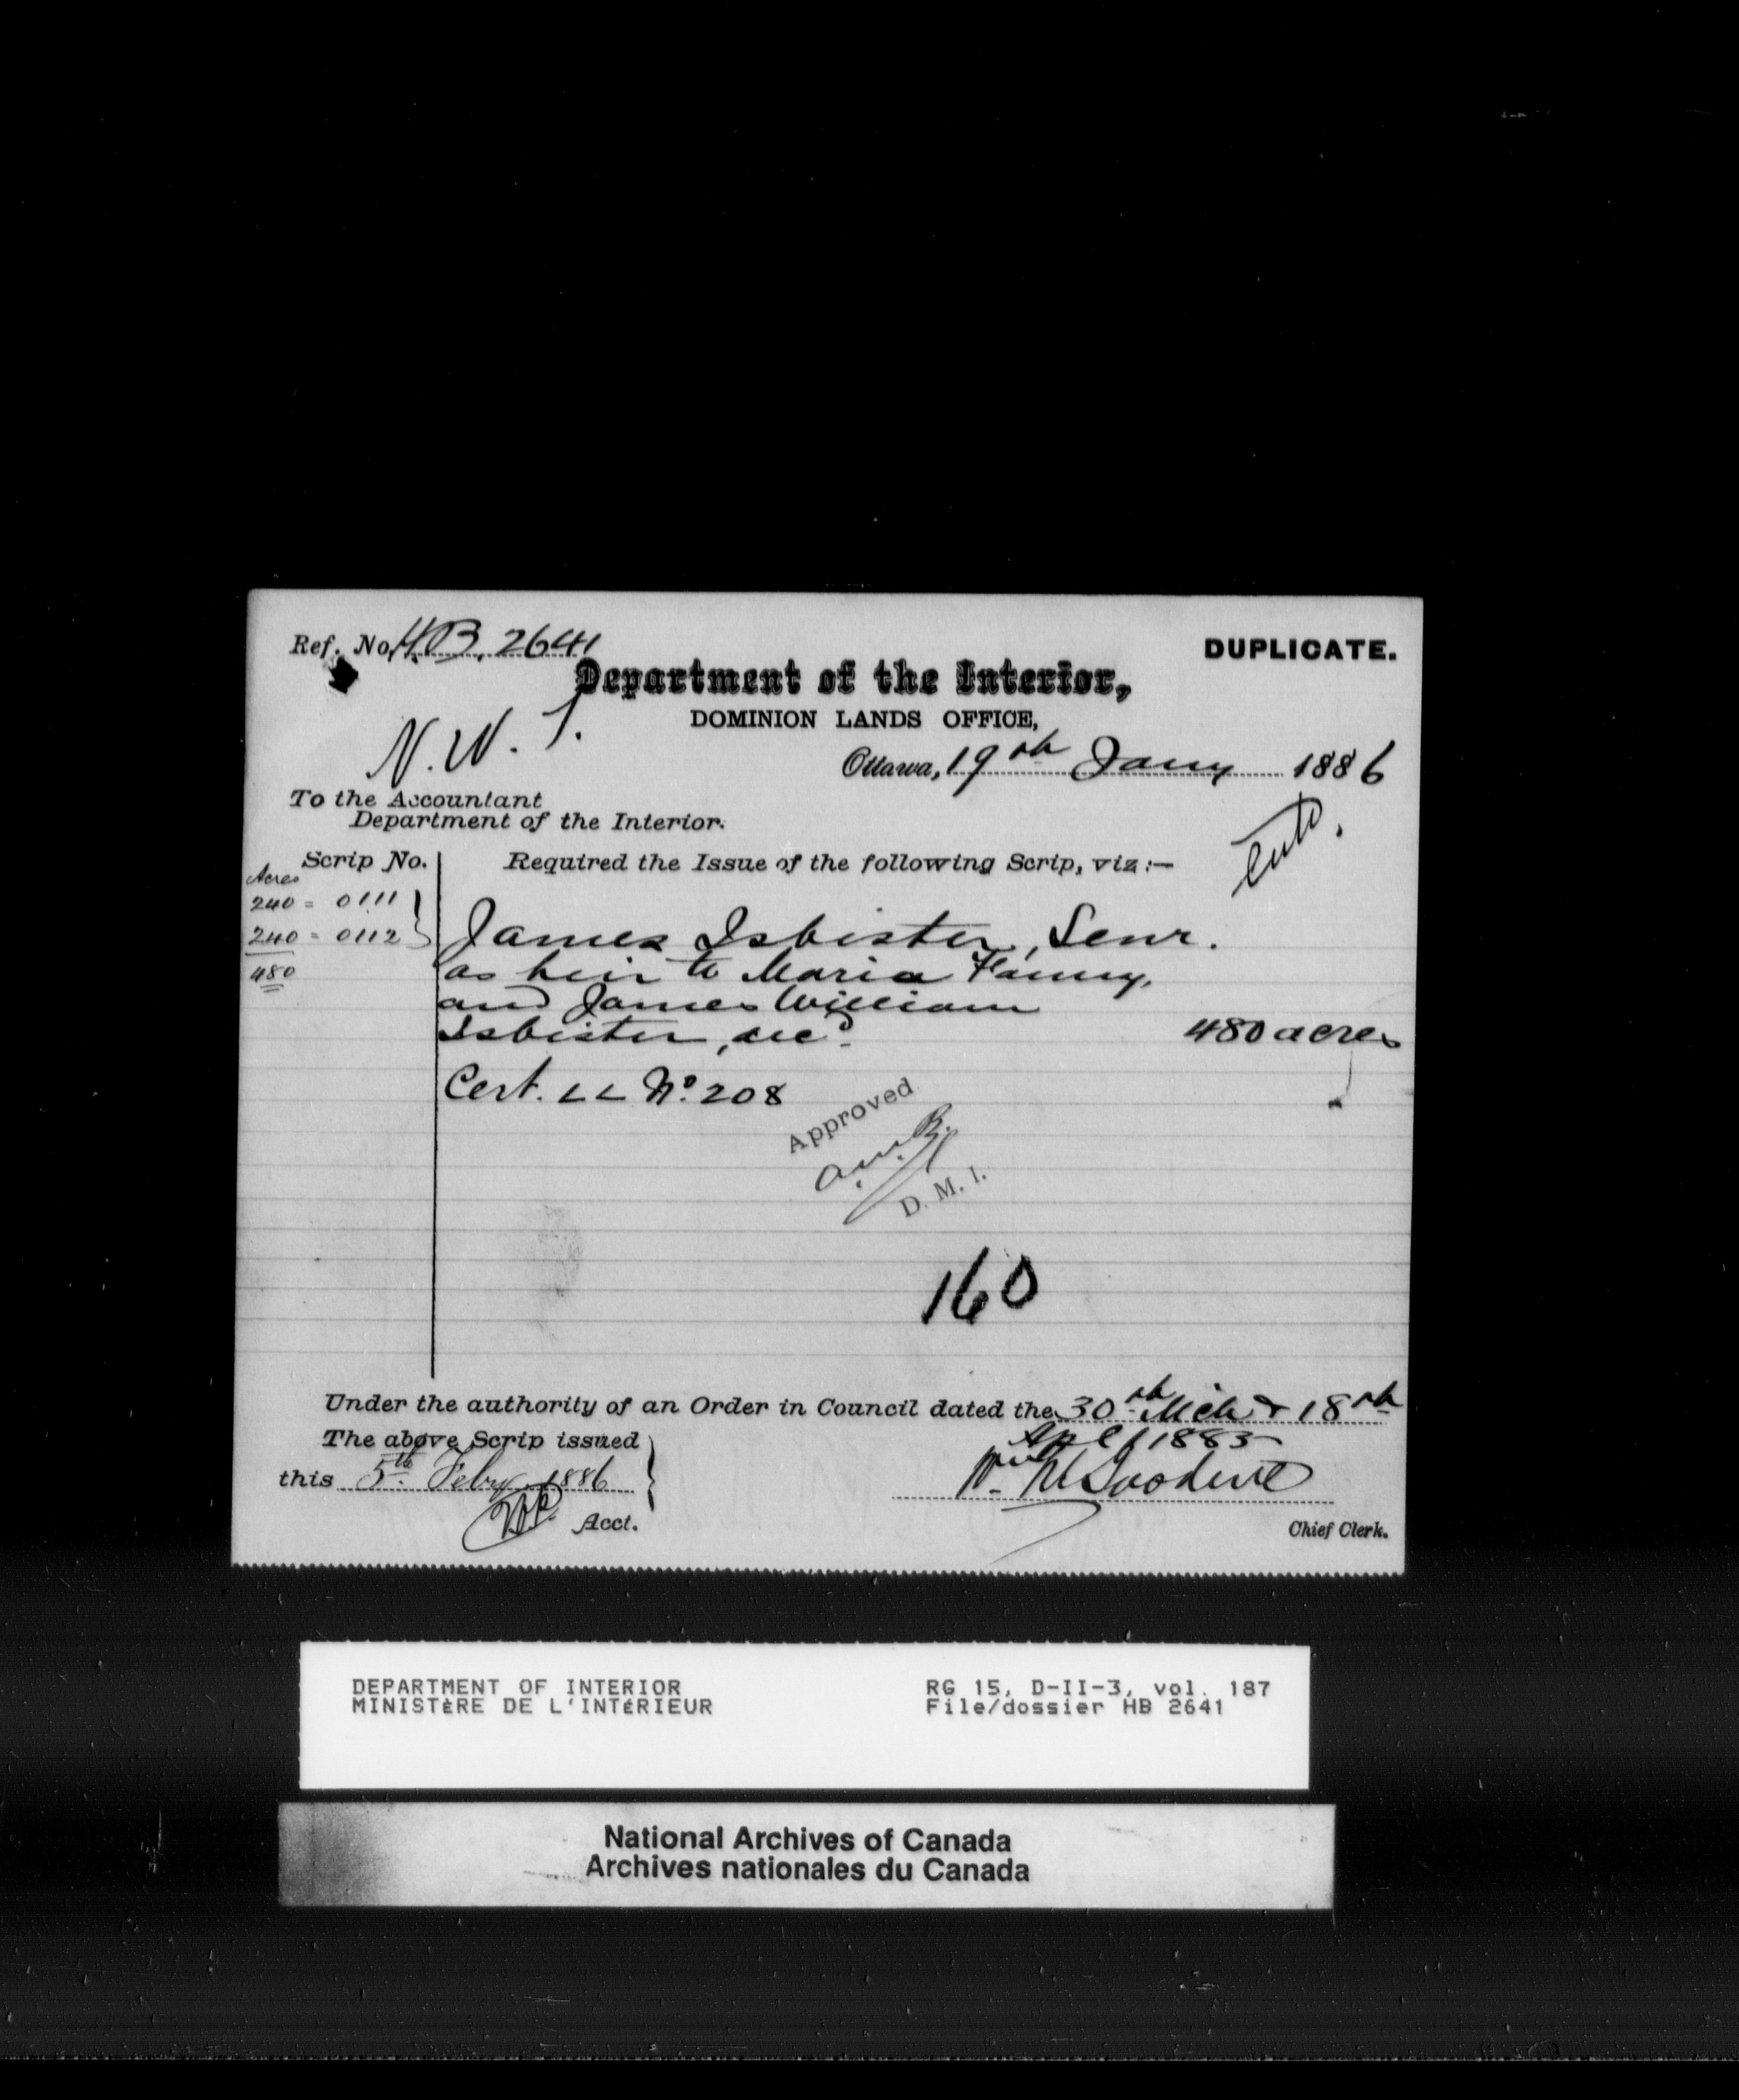 Ref. No. H.B. 2641
DUPLICATE.
Department of the Interior,
DOMINION LANDS OFFICE,
N.W.T.
Ottawa, 19th Jany 1886
To the Accountant
Department of the Interior.
Entd.
Scrip No.
Required the Issue of the following Scrip, viz:—
Acres
240 = 0111
240 = 0112
480
James Isbister, Senr.
as heir to Maria Fanny,
and James William
Isbister, decd.
480 acres
Cert. LL No. 208
Approved
A.M.B.
D. M. I.
160
Under the authority of an Order in Council dated the 30th Mch & 18th
Apl 1885
The above Scrip issued
this 5th Feby 1886
Acct.
Wm M Goodeve
Chief Clerk.
DEPARTMENT OF INTERIOR
MINISTÈRE DE L'INTÉRIEUR
RG 15, D-II-3, vol. 187
File/dossier HB 2641
National Archives of Canada
Archives nationales du Canada